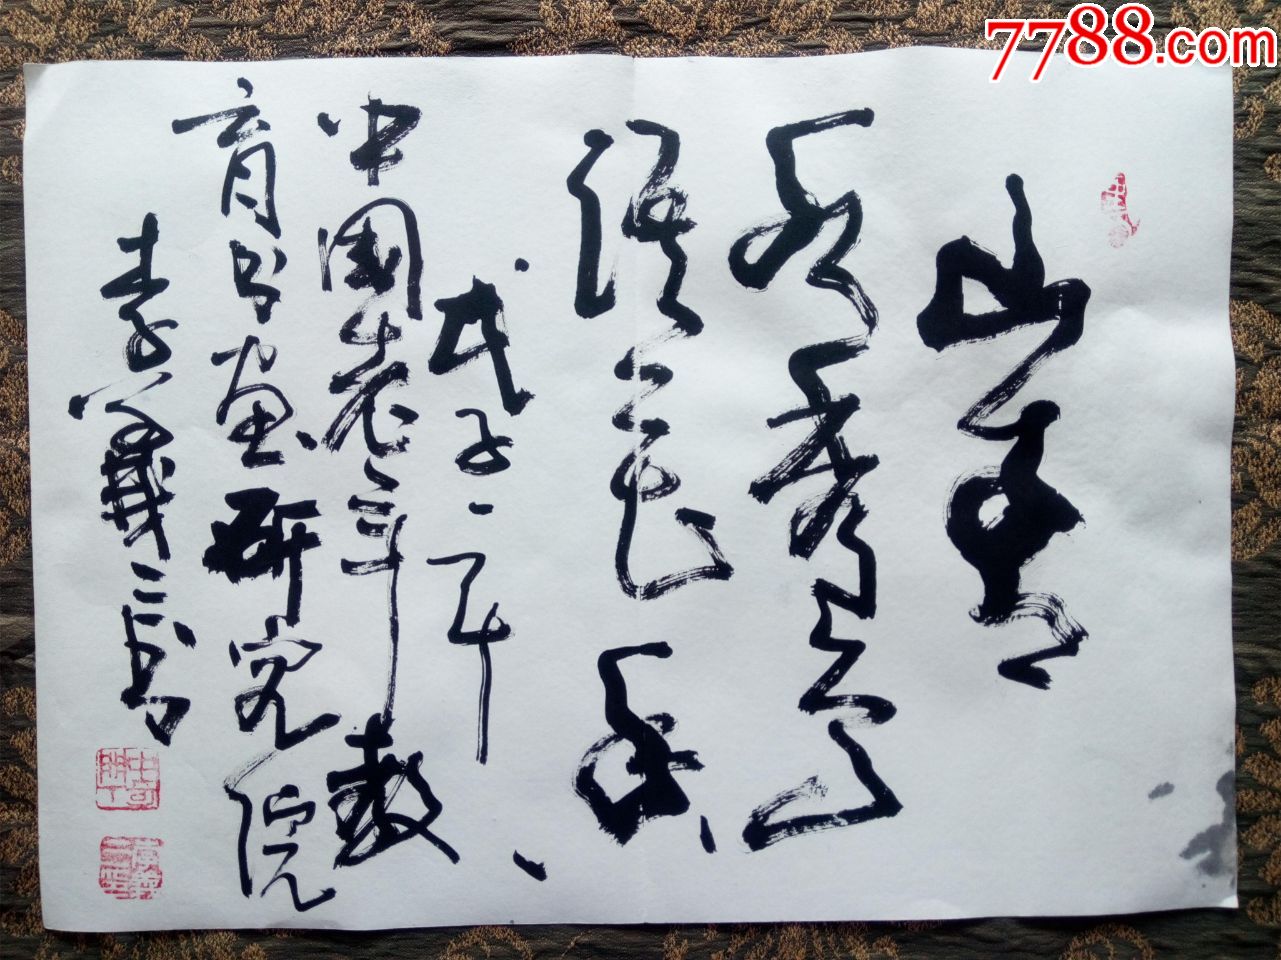 7788.com
山青
水秀鸟
语花香
戊子年
中国老年教
育书画研究院
李義三书